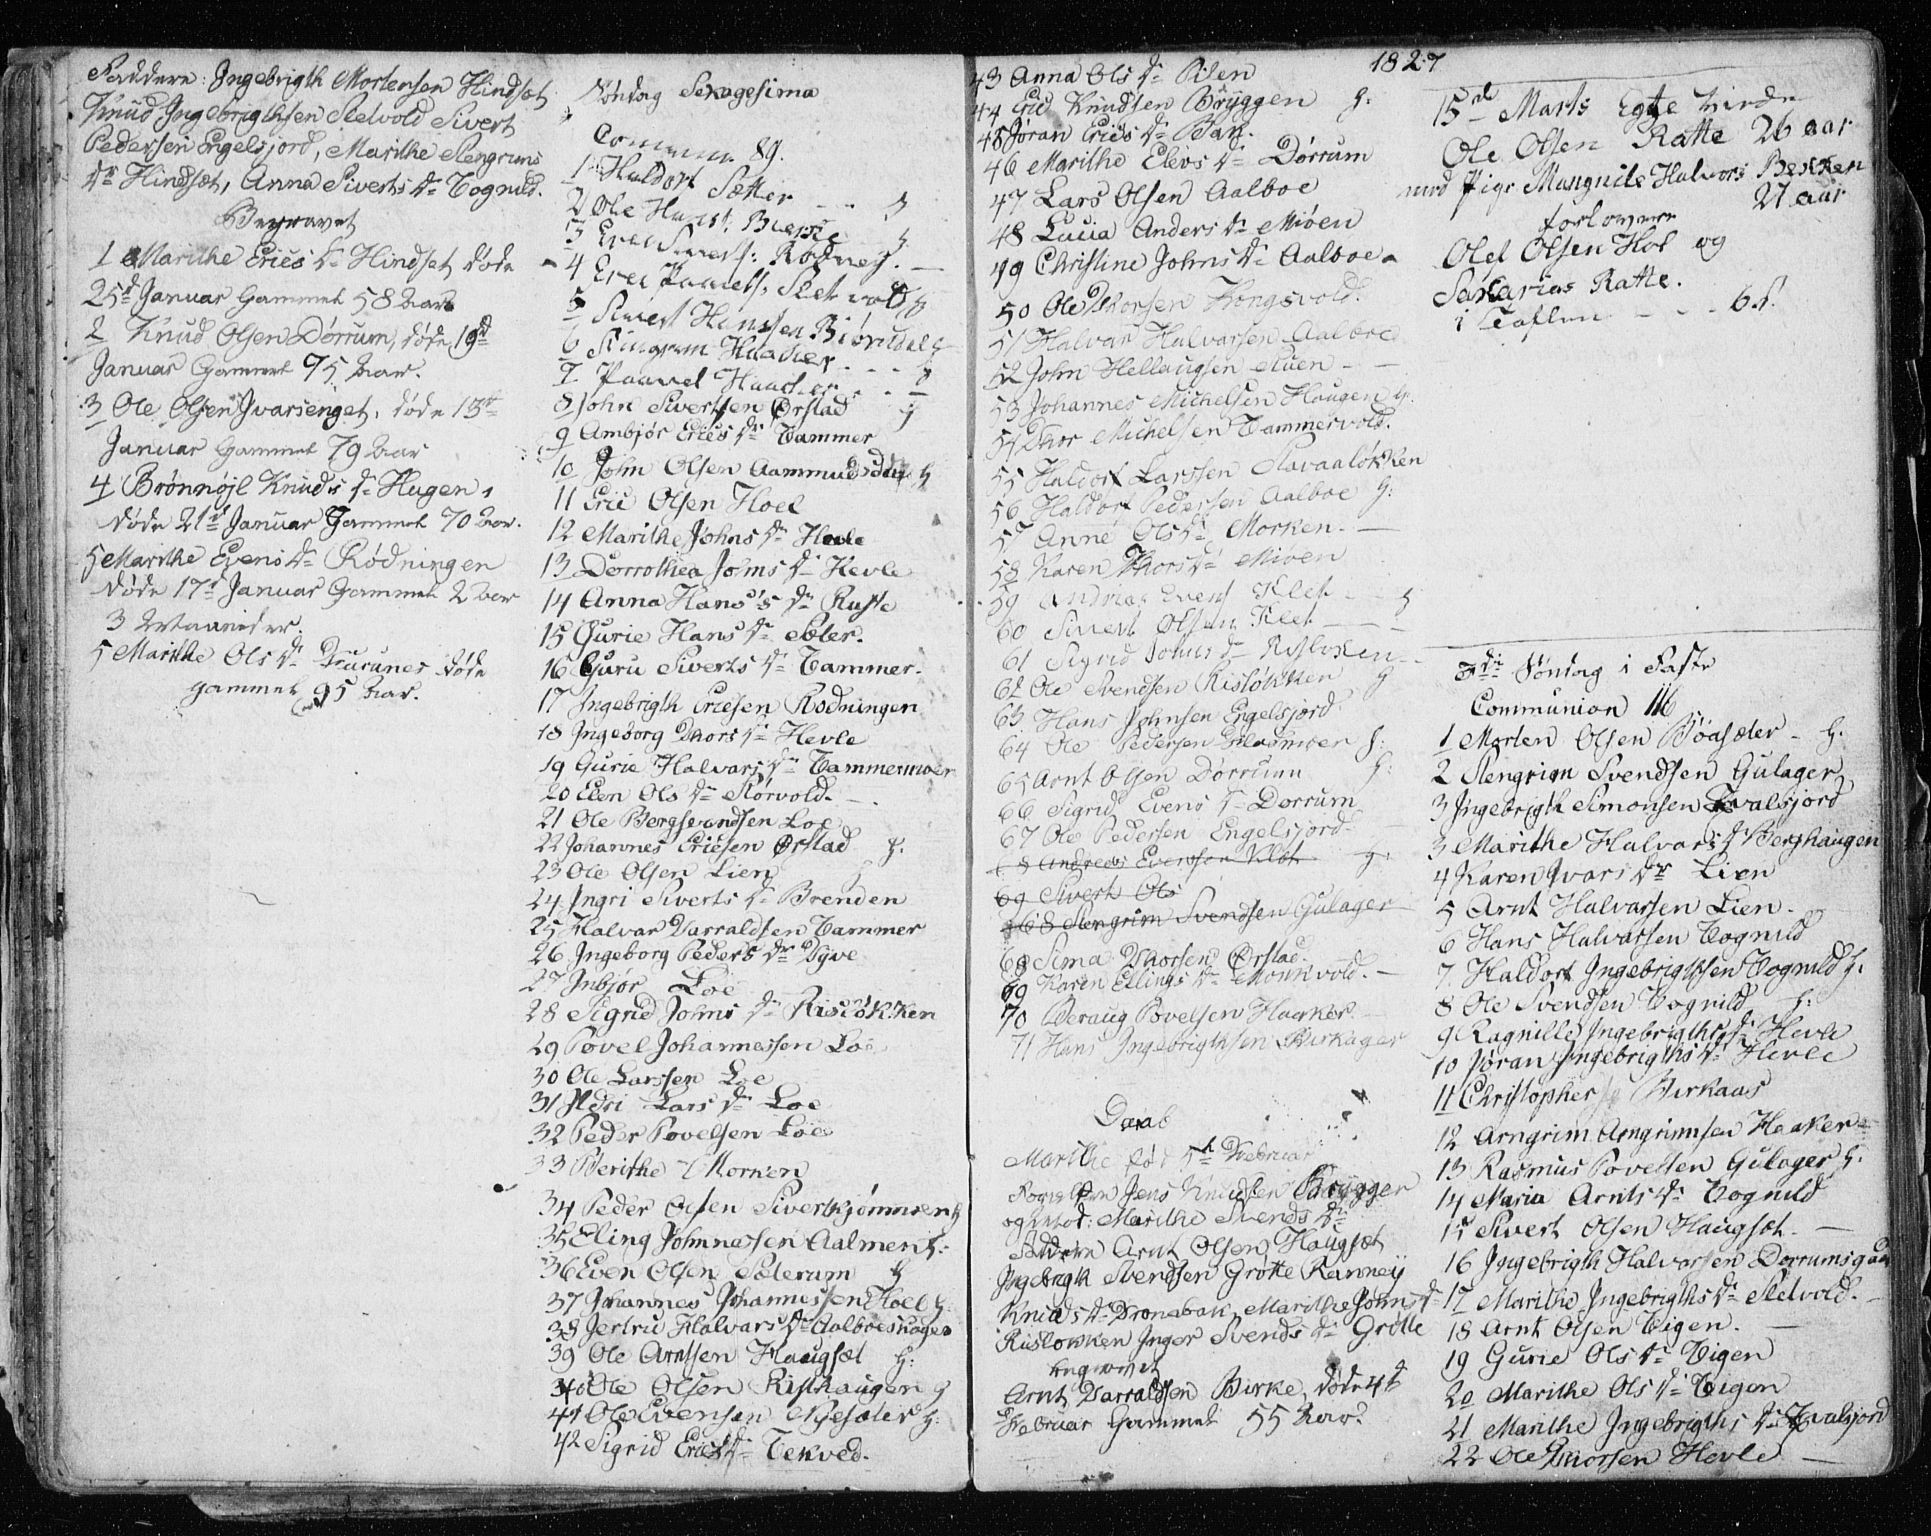 Faddere: Ingebrigth Mortensen Hindset
Knud Ingebrigthsen Sletvold Sivert
Pedersen Engelsjord, Marithe Stengrims
Dr Hindsæt, Anna Siverts Dr Vognild.
Begravet
1 Marithe Erics Dr Hindset, døde
25d Januar Gammel 58 Aar
2 Knud Olsen Dørrum, døde 19d
Januar Gammel 75 Aar.
3 Ole Olsen Ivarsenget, døde 13d
Januar Gammel 79 Aar
4 Brønnøjl Knuds Dr Hugen,
døde 21d Januar Gammel 70 Aar.
5 Marithe Evens Dr Rødningen
døde 17d Januar Gammel 2 Aar
3 Maaneder.
5 Marithe Ols Dr døde
gammel 95 Aar.
Søndag Sexagesima
Commun. 89.
1 Haldort Sætter
2 Ole
3 Eric Sivers:
4 Eric Paavels: Sletvold
5 Sivert Hanssen Biørndal
6 Stingrim Haacker
7 Paavel Haacker
8 John Sivertsen Ørstad H
9 Ambjør Erics Dr Tammer
10 John Olsen
11 Eric Olsen Hoel
12 Marithe Johns Dr Hevle
13 Dorrothea Johns Dr Hevle
14 Anna Hans's Dr Ruste
15 Gurie Hans Dr Sæter.
16 Guru Siverts Dr Tammer.
17 Ingebrigth Ericsen Rodningen
18 Ingeborg Thors Dr Hevle
19 Gurie Halvars Dr Tammermoer
20 Elen Ols Dr Storvold.
21 Ole Bergsvendsen Loe
22 Johannes Ericsen Ørstad H:
23 Ole Olsen Lien
24 Ingri Siverts Dr Brenden
25 Halvar Harraldsen Tammer
26 Ingeborg Peders Dr Dyve
27 Inbjør Loe
28 Sigrid Johns Dr Risløkken
29 Povel Johannessen Loe
30 Ole Larssen Loe
31 Lars Dr Loe
32 Peder Povelsen Loe
33 Berithe Morken
34 Peder Olsen Siverkjønmoen H
35 Eling Johnnessen Aalmen H:
36 Even Olsen Sæterum H
37 Johannes Johannessen Hoel H
38 Jertru Halvars Dr Aalboeskogen
39 Ole Arntsen Haugset H:
40 Ole Olsen Risthaugen H
41 Ole Evensen H:
42 Sigrid Erics Dr Tekved.
1827
43 Anna Ols Dr Stien
44 Eric Knudsen Bryggen H:
45 Jøran Erics Dr Bak.
46 Marithe Elevs Dr Dørrum
47 Lars Olsen Aalboe
48 Lucia Anders Dr Mioen
49 Christine Johns Dr Aalboe
50 Ole Thorsen Kongsvold.
51 Halvar Halvarsen Aalboe
52 John Hellaugsen Stuen
53 Johannes Michelsen Haugen H:
54 Thor Michelsen Tammervold.
55 Haldort Larssen Stavaaløkken
56 Haldort Pedersen Aalboe H:
57 Anne Ols Dr Morken.
58 Karen Thors Dr Mioen
59 Andreas Evens Klet H
60 Sivert Olsen Klet
61 Sigrid Johns Dr Risløkken
62 Ole Svendsen Risløkken H
63 Hans Johnsen Engelsjord
64 Ole Pedersen H:
65 Arnt Olsen Dørrum H:
66 Sigrid Evens Dr Dørrum
67 Ole Pedersen Engelsjord
68 Andreas Evensen Klet H:
69 Sivert Ols
68 Stengrim Svendsen Gulager
68 Sima Thorsen Ørstad.
69 Karen Ellings Dr Munkvold.
70 Beraug Povelsen Haarker
71 Hans Ingebrigthsen Birkager
Daab
Marithe fød 5d Februar
Forældre Jens Knudsen Brygger
og Marithe Svends Dr
Faddere Arnt Olsen Haugset
Ingebrigth Svendsen Grøtte Ranney
Knuds Dr Marithe Johns Dr
Risløkken Inger Svends Dr Grøtte
begravet
Arnt Harraldsen Birke, døde 4d
Februar Gammel 55 Aar
15d Marts Egte viede
Ole Olsen Ratte 26 aar
med Pige Mangnilde Halvors Bekken
27 aar
forlovere
Olef Olsen Hol og
Sakarias Ratte.
i Taflen 6 s.
3die Søndag i Faste
Communion 116
1 Morten Olsen Bøasæter H:
2 Stengrim Svendsen Gulager
3 Ingebrigth Simonsen Hvalsjord
3 Marithe Halvars Dr Berghaugen
4 Karen Ivars Dr Lien
5 Arnt Halvarsen Lien.
6 Hans Halvarsen Vognild
7 Haldort Ingebrigthsen Vognild H:
8 Ole Svendsen Vognild H:
9 Ragnille Ingebrigths Dr Hevle
10 Jøran Ingebrigths Dr Hevle
11 Christopher Birkaas
12 Arngrim Arngrimsen Haaker
13 Rasmus Povelsen Gulager H:
14 Maria Arnts Dr Vognild
15 Sivert Olsen Haugset.
16 Ingebrigth Halvarsen Dorrumsgaa
17 Marithe Ingebrigths Dr Sletvold.
18 Arnt Olsen Vigen.
19 Gurie Ols Dr Vigen
20 Marithe Ols Dr Vigen
21 Marithe Ingebrigths Dr Hvalsjord
22 Ole Thorsen Hevle